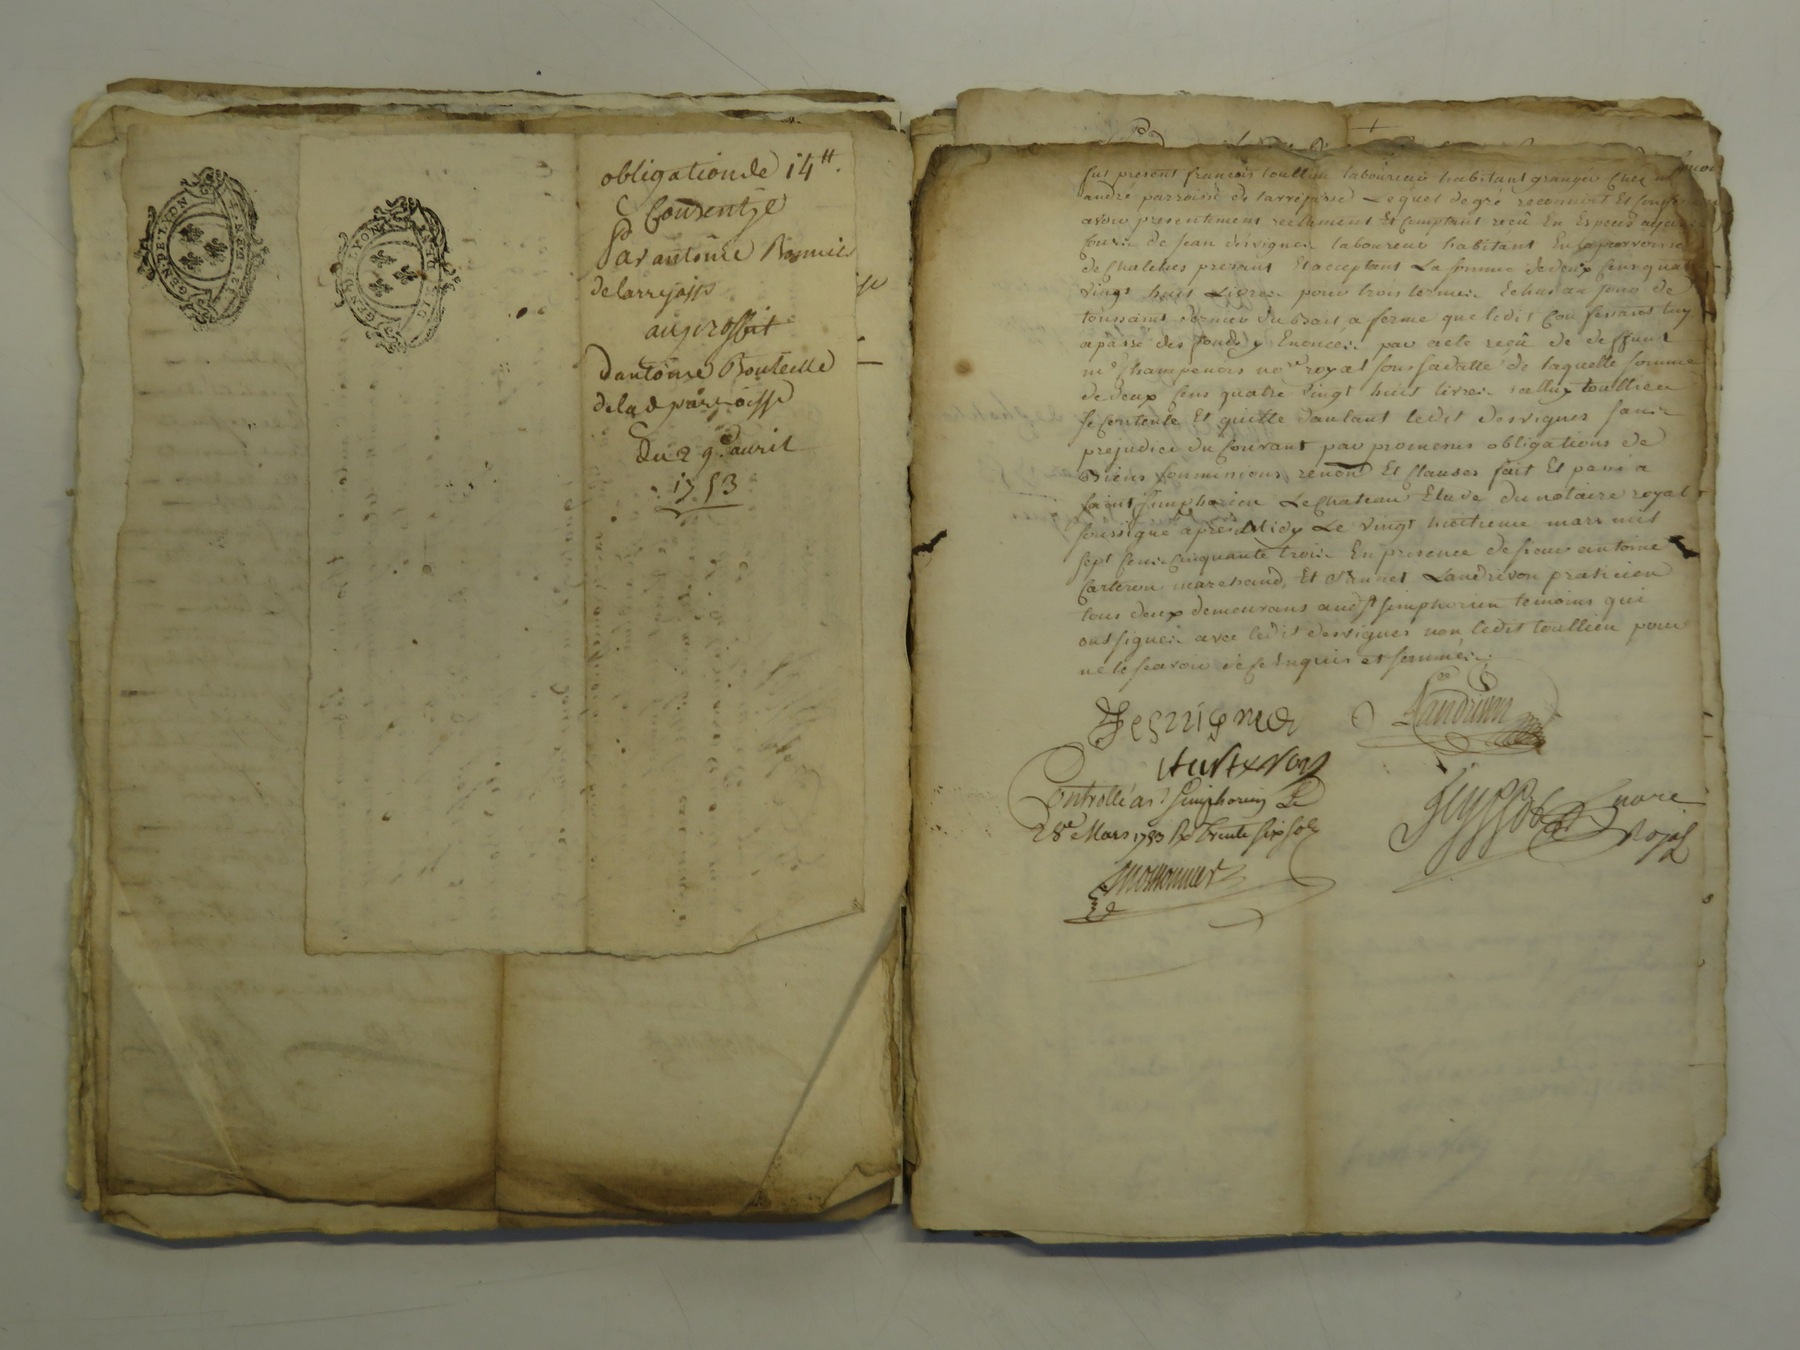 GEN·DE·LYON
GEN·DE LYON
obligation de 14ᵗᵗ.
Par antoine
de larrejasse
au proffit
dantoine Bouteille
de lad parroisse
Du 29e. auril
1753
fut present francois toullieu laboureur habitant granger chez
andré parroisse de larrejasse Lequel de gré reconnoit Et
avoir presentement reelement Et Comptant reçû En Especes
de jean desvignes laboureur habitant En la parroisse
de Chatelus presant Et acceptant La somme de deux Cens quatre
vingt huit Livres pour trois termes Echus au jour de
toussaint dernier du Bail a ferme que ledit Confessant luy
a passé des fonds y Enoncés par acte reçû de deffunt
me Champenois nore royal sous sa datte de laquelle somme
de deux Cens quatre vingt huit livres icelluy toullieu
se Contente Et quitte dautant ledit desvignes sans
prejudice du Courant par promesses obligations de
Biens soumissions renon Et Clauses fait Et passé a
saint Simphorien Le Chateau Etude du notaire royal
soussigné après Midy Le vingt huitieme mars mil
sept Cens Cinquante trois En presence de sieur antoine
Carteron marchand, Et Brunet Landrivon praticien
tous deux demeurans aud St simphorien temoins qui
ont signés avec ledit desvignes non ledit toullieu pour
ne le sçavoir de ce Enquis et sommés.
Desvignes Landrivon
Controllé a St Simphorien Le
28e Mars 1753 Rx Trente six sols
nore
Royal